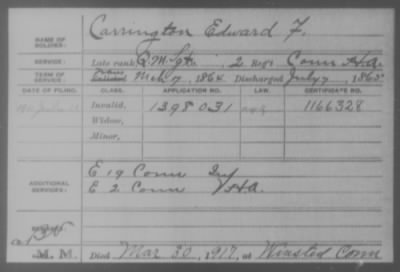 NAME OF SOLDIER: Carrington Edward F.
SERVICE: Late rank Q.M. Sgt. 2 Regt. Conn H.A.
TERM OF SERVICE: Enlisted Mch 7, 1864. Discharged July 7, 1865
DATE OF FILING. CLASS. APPLICATION NO. LAW. CERTIFICATE NO.
Invalid, 1398031 1166328
Widow,
Minor,
ADDITIONAL SERVICES: E 19 Conn Inf
E 2 Conn H.A.
REMARKS:
M. M. Died Mar 30, 1917, at Winsted Conn